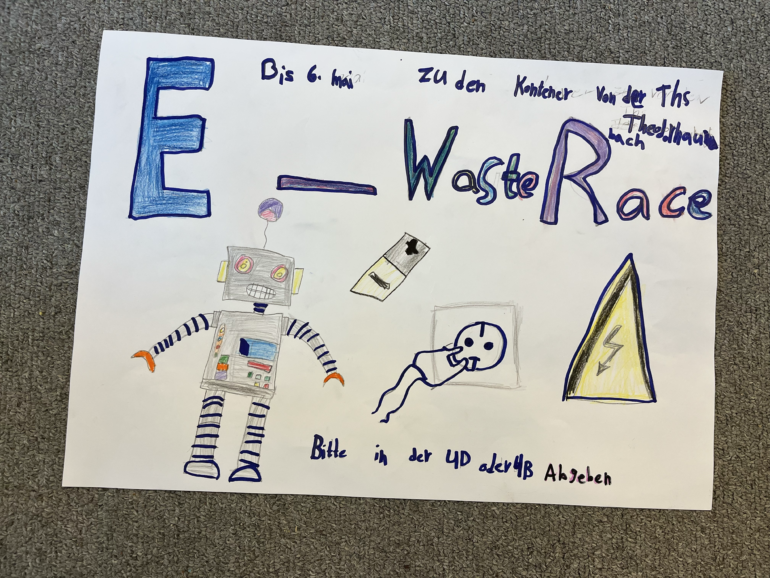 Bis 6. mai zu den Kontener von der Ths
bach
E - Waste Race
+
-
Bitte in der 4D oder 4B Abgeben